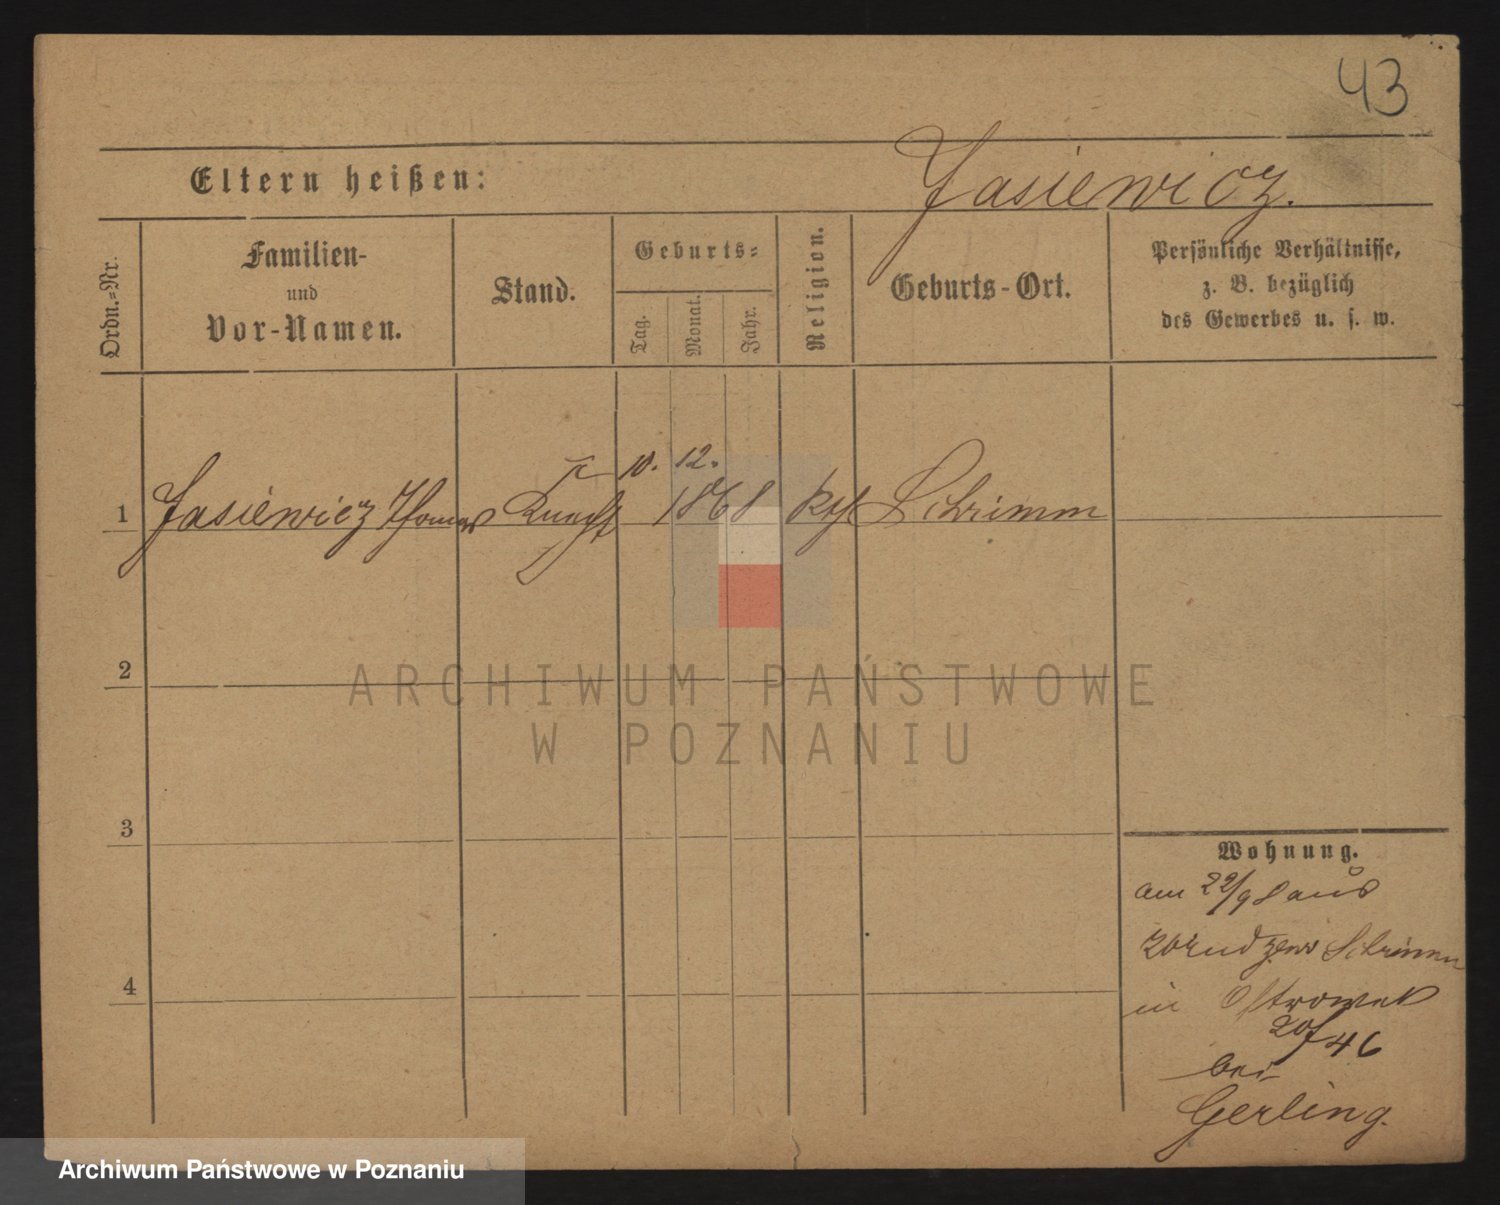 43
Eltern heißen:
Jasiewicz.
Ordn.=Nr.
Familien-
und
Vor-Namen.
Stand.
Geburts=
Tag.
Monat.
Jahr.
Religion.
Geburts-Ort.
Persönliche Verhältnisse,
z. B. bezüglich
des Gewerbes u. s. w.
10. 12.
1 Jasiewicz Thomas Knecht 1868 kth Schrimm
2
ARCHIWUM PAŃSTWOWE
W POZNANIU
3
Wohnung.
am 22/9 8 aus
Schrimm
4
in Ostrowek
20/46
bei
Gerling.
Archiwum Państwowe w Poznaniu